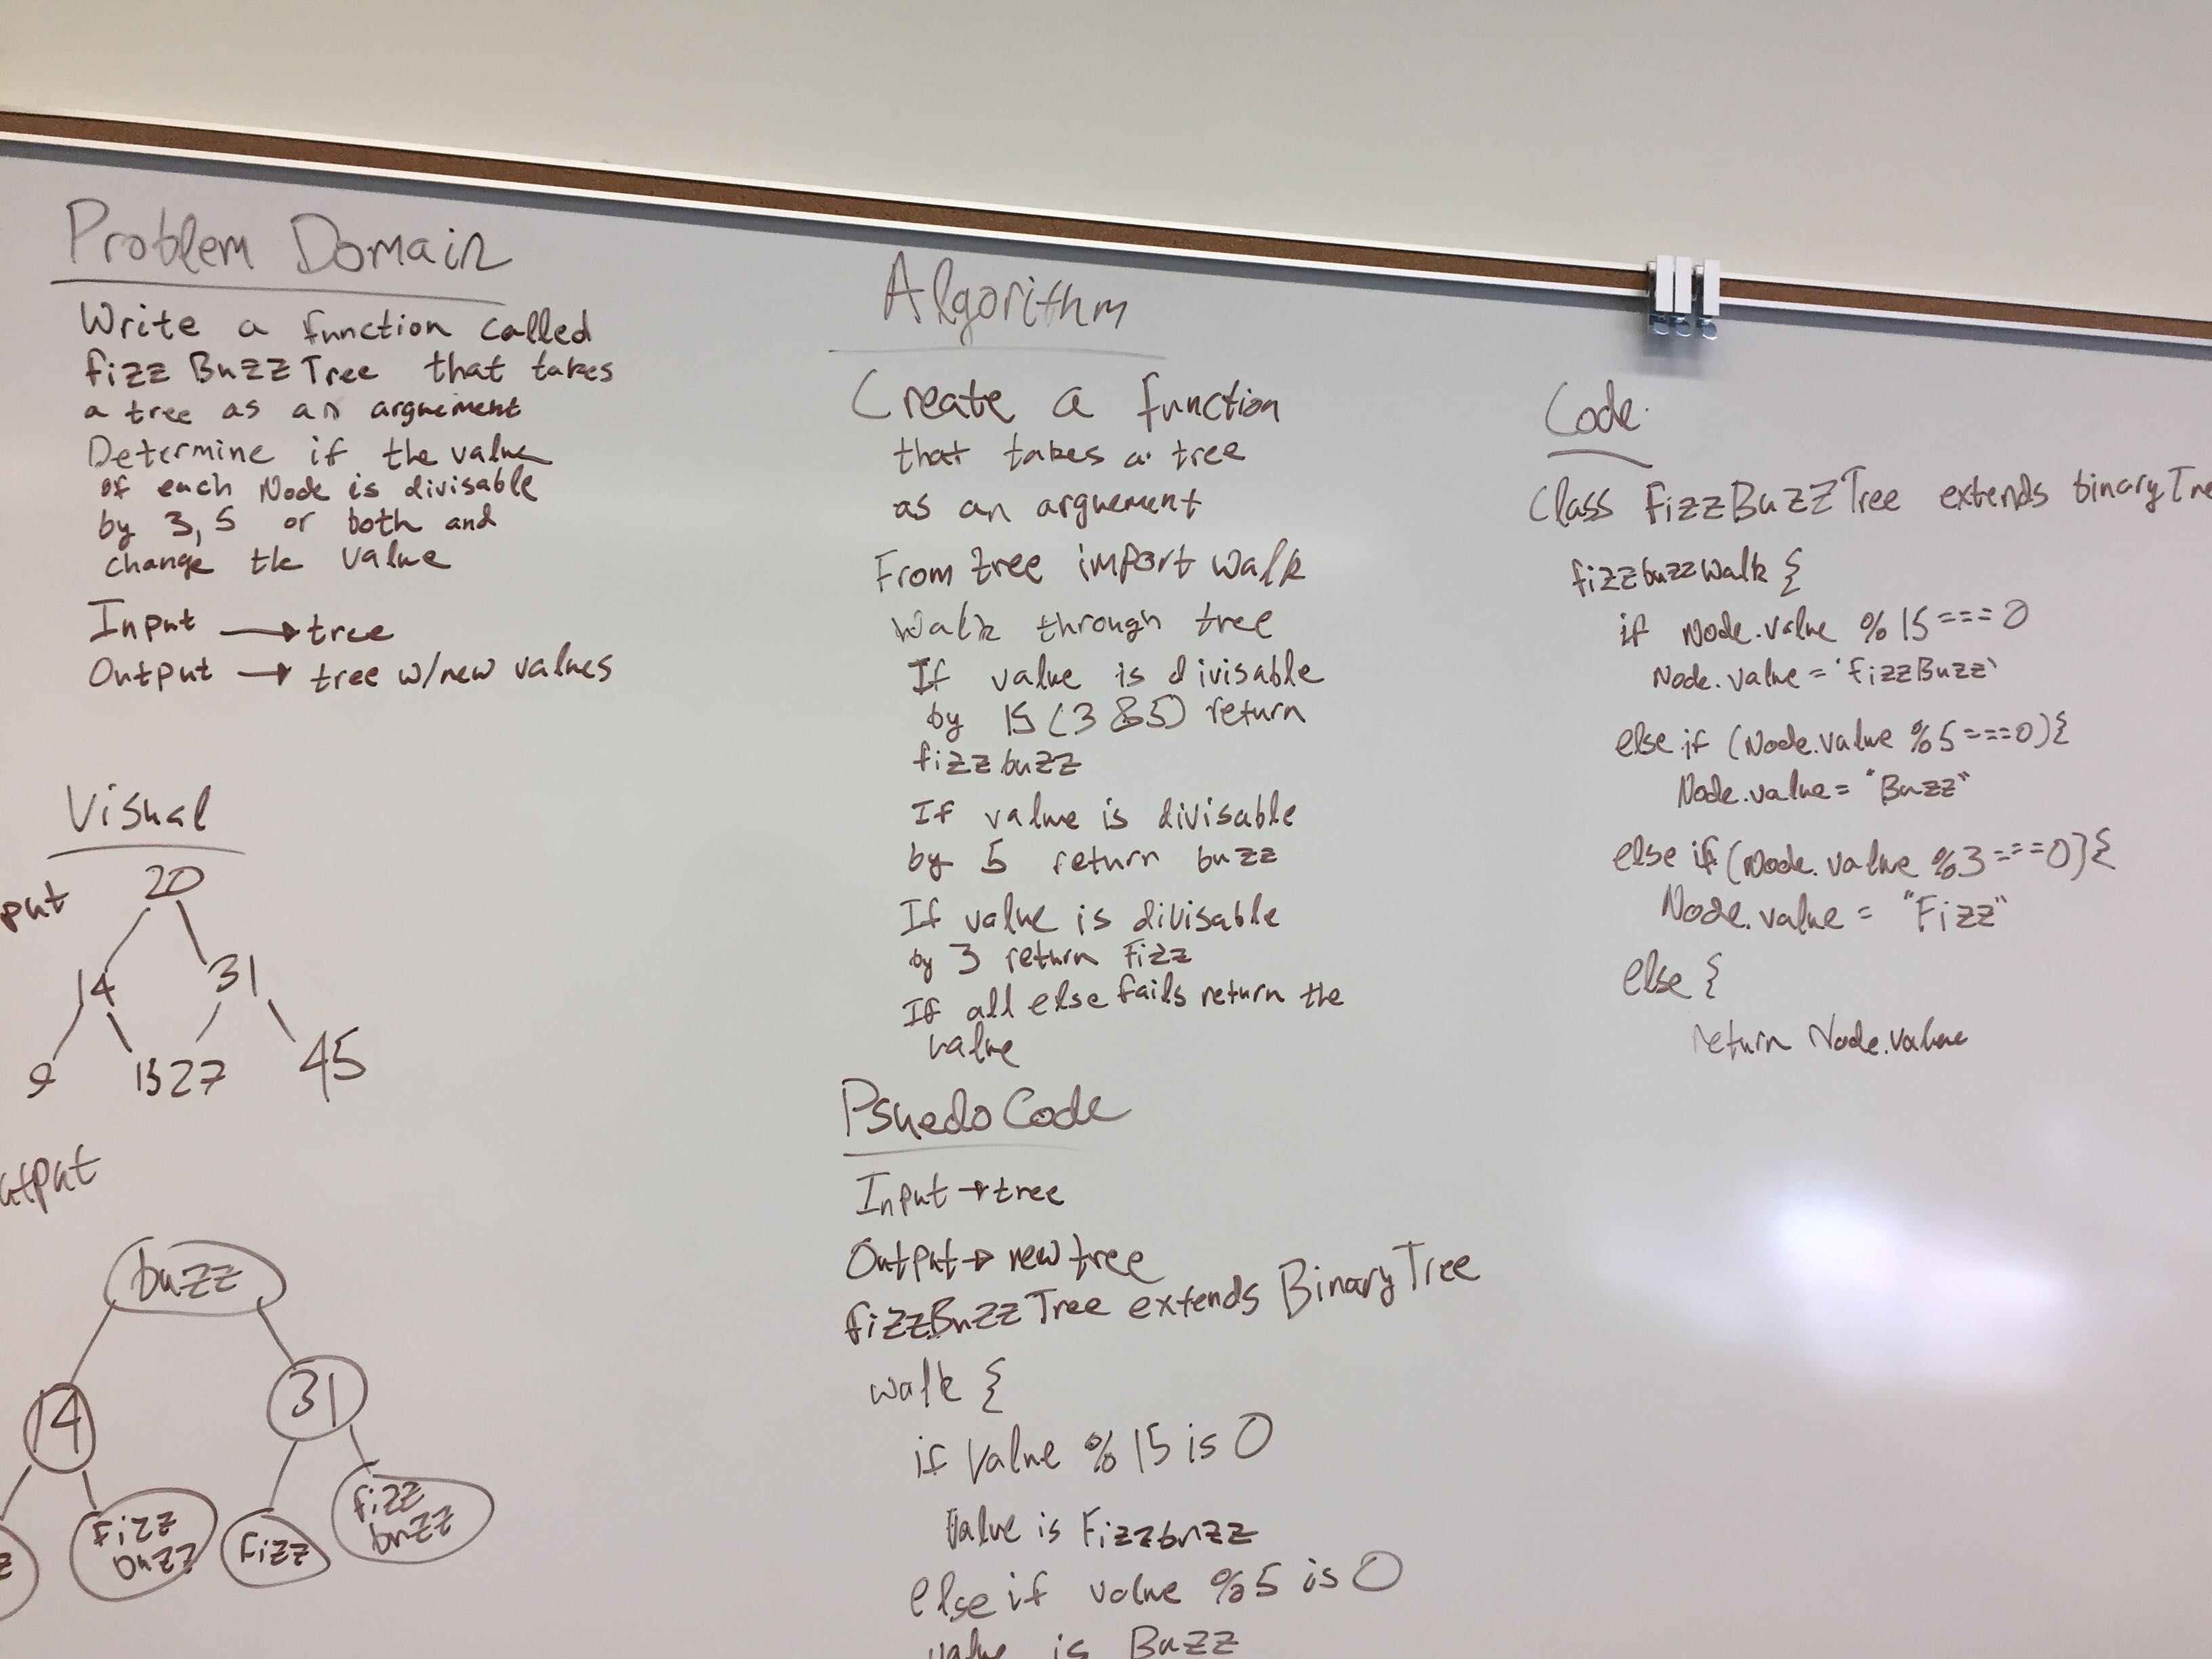 Problem Domain
Write a function called
fizzBuzzTree that takes
a tree as an arguement
Determine if the value
of each Node is divisable
by 3, 5 or both and
change the value
Input → tree
Output → tree w/new values
Visual
put
20
14 31
9 15 27 45
utput
buzz
14 31
z fizz buzz fizz fizz buzz
Algorithm
Create a function
that takes a tree
as an arguement
From tree import walk
Walk through tree
If value is divisable
by 15 (3 & 5) return
fizzbuzz
If value is divisable
by 5 return buzz
If value is divisable
by 3 return Fizz
If all else fails return the
value
Psuedo Code
Input → tree
Output → new tree
fizzBuzzTree extends BinaryTree
walk {
if Value % 15 is 0
Value is Fizzbuzz
else if value % 5 is 0
value is Buzz
Code
Class FizzBuzzTree extends binaryTre
fizzbuzzWalk {
if Node.value % 15 === 0
Node.value = 'FizzBuzz'
else if (Node.value % 5 === 0) {
Node.value = "Buzz"
else if (Node.value % 3 === 0) {
Node.value = "Fizz"
else {
return Node.value